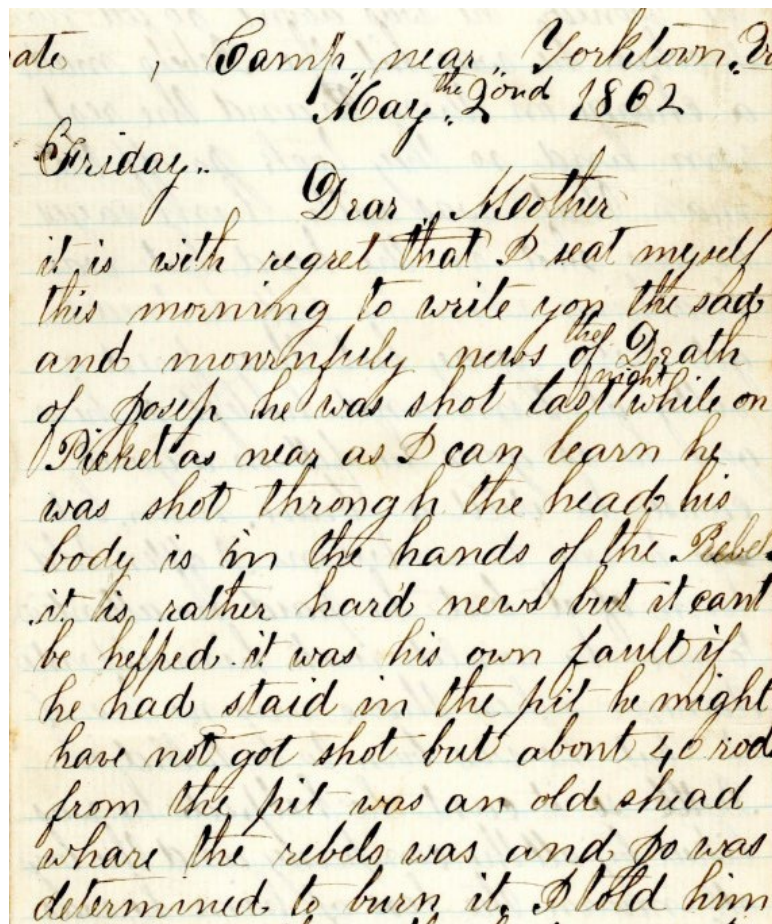 ate , Camp near Yorktown. Va
May. the 2ond 1862
Friday..
Dear Mother
it is with regret that I seat myself
this morning to write you the sad
and mournfuly news of the Death
of Josep he was shot last night while on
Picket as near as I can learn he
was shot through the head his
body is in the hands of the Rebels
it is rather hard news but it cant
be helped. it was his own fault if
he had staid in the pit he might
have not got shot but about 40 rod
from the pit was an old shead
whare the rebels was and Jo was
determined to burn it, I told him